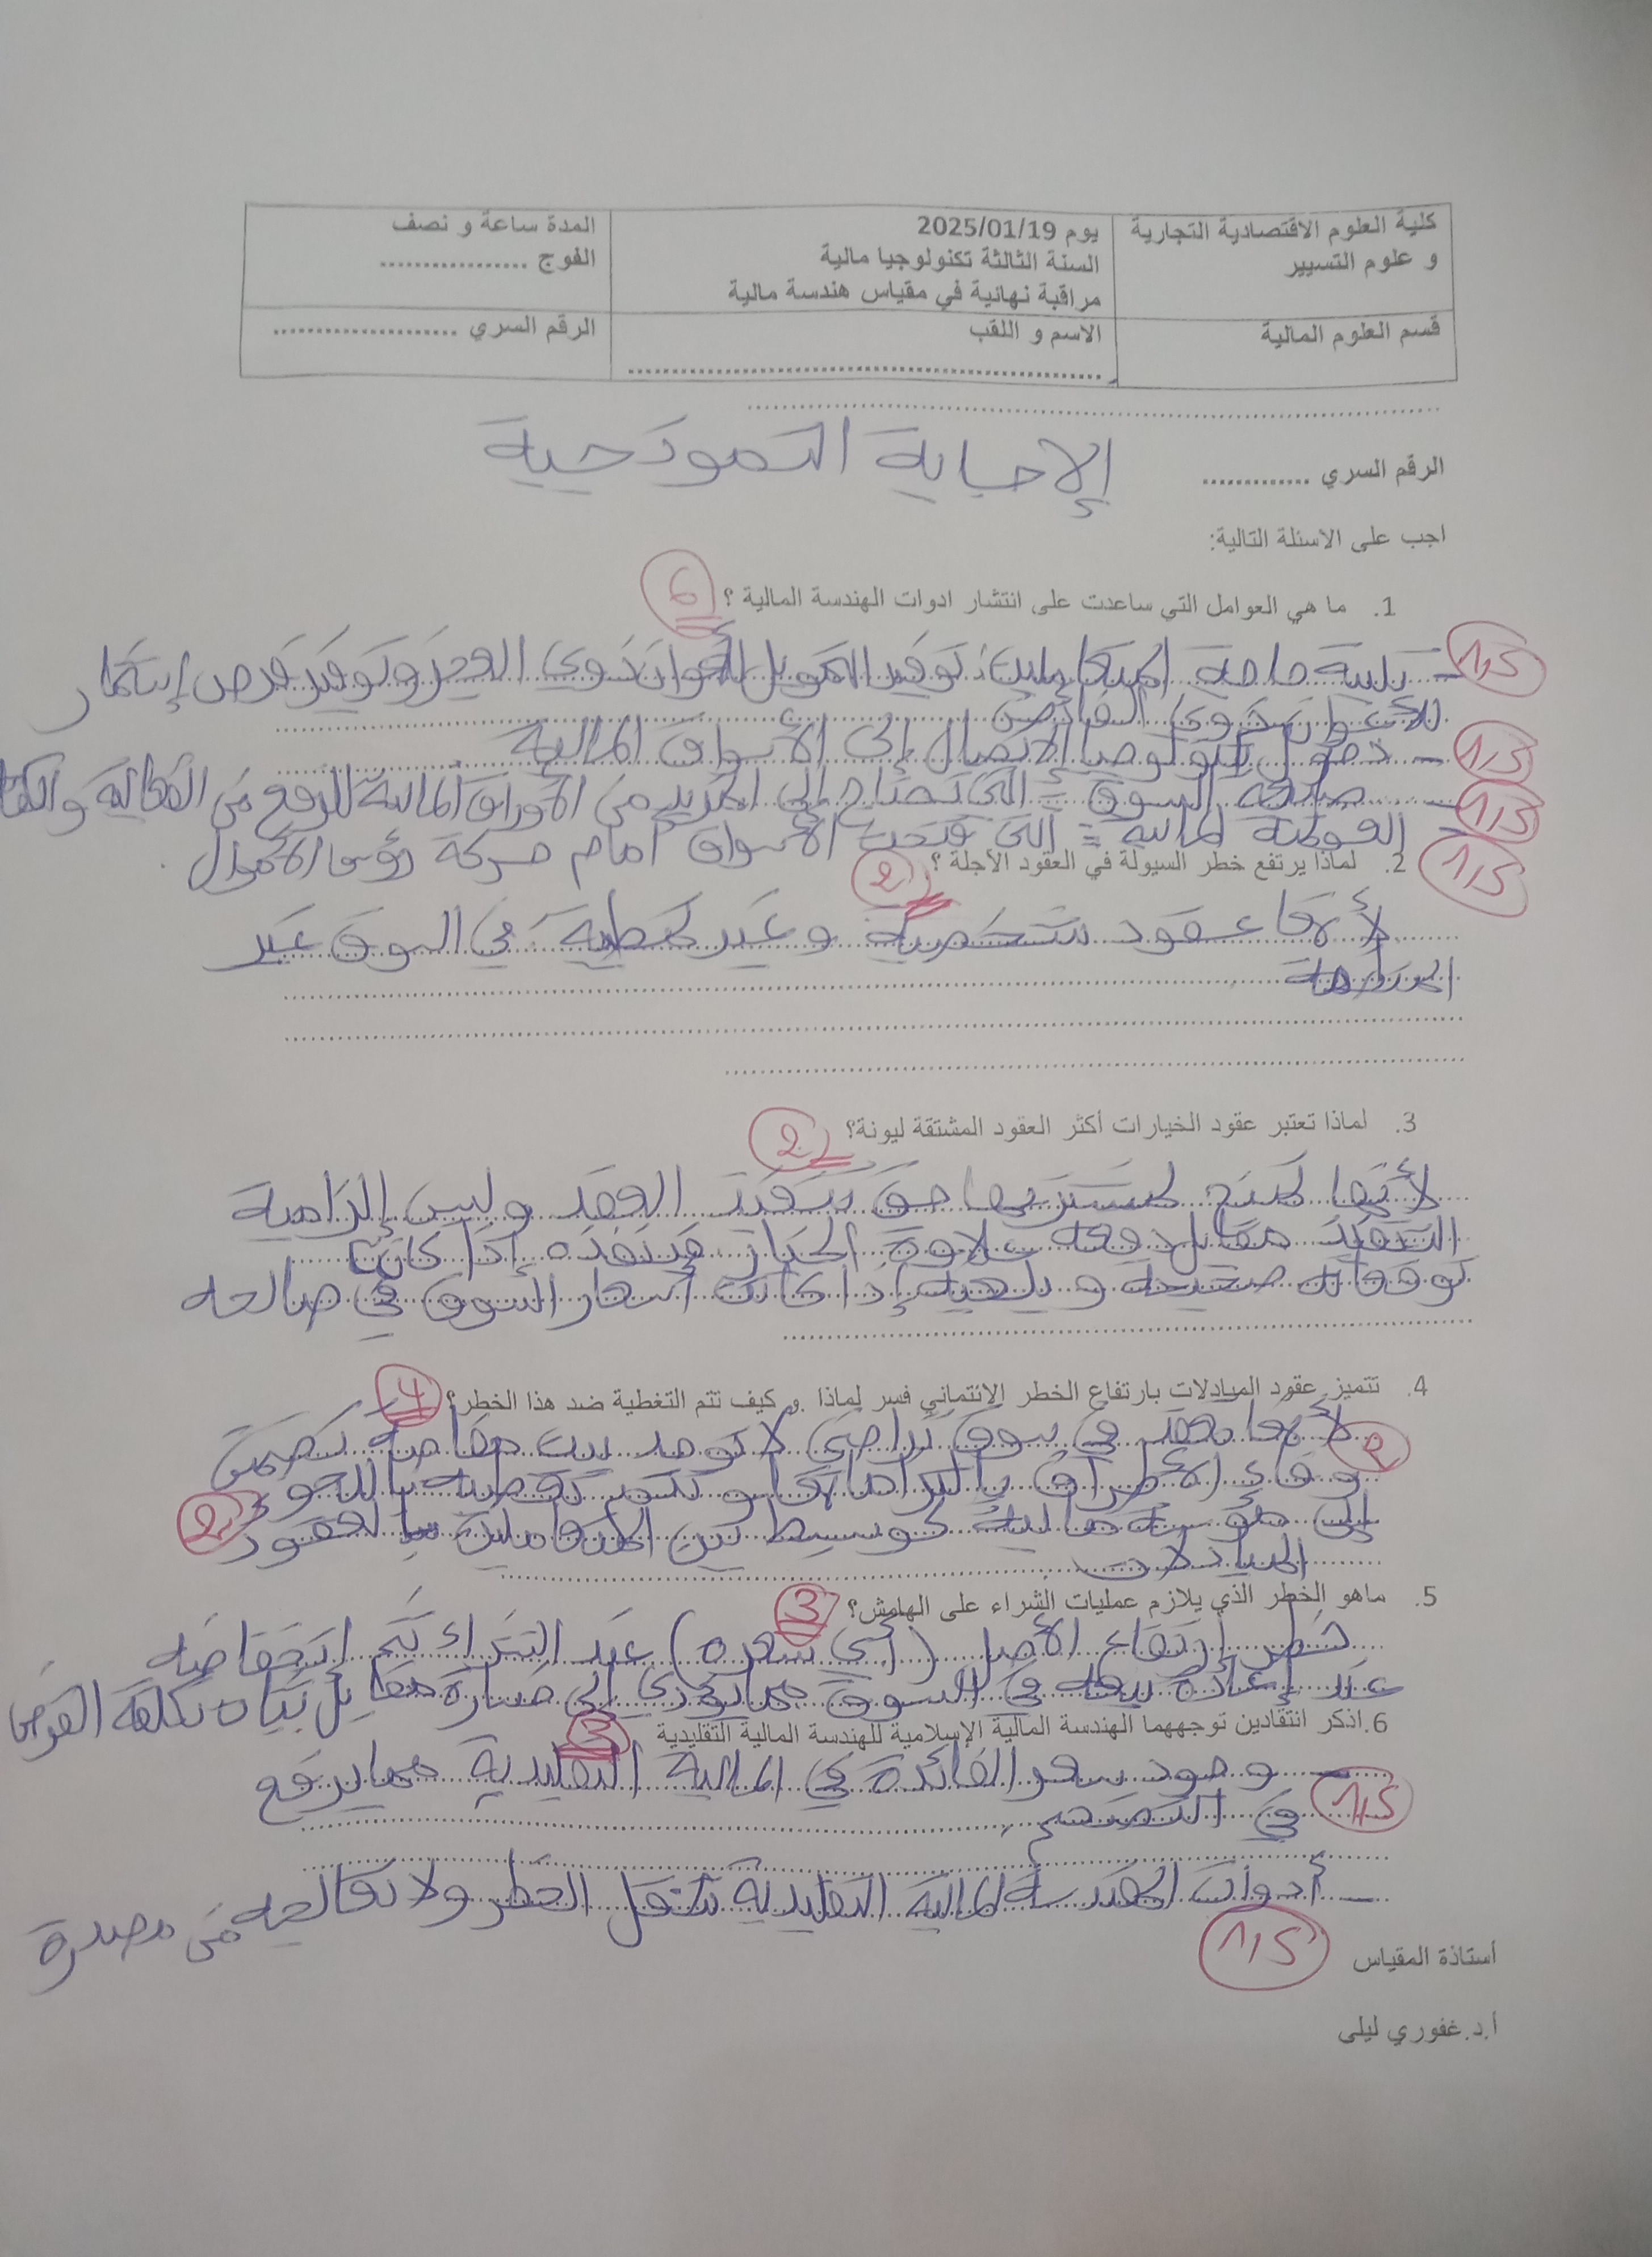 كلية العلوم الاقتصادية التجارية
و علوم التسيير
يوم 2025/01/19
السنة الثالثة تكنولوجيا مالية
مراقبة نهائية في مقياس هندسة مالية
المدة ساعة و نصف
الفوج .................
قسم العلوم المالية
الاسم و اللقب
الرقم السري .....................
الرقم السري .............
الإجابة النموذجية
اجب على الاسئلة التالية:
1. ما هي العوامل التي ساعدت على انتشار ادوات الهندسة المالية ؟ 6
1,5 - تلبية حاجة المتعاملين: توفير التمويل للأعوان ذوي العجز وتوفير فرص إستثمار
للأعوان ذوي الفائض
1,5 - دخول تكنولوجيا الاتصال إلى الأسواق المالية
1,5 - السوق = التي تحتاج إلى المزيد من الأوراق المالية للرفع من الفعالية و
1,5 - العولمة المالية = التي فتحت الأسواق أمام حركة رؤوس الأموال.
2. لماذا يرتفع خطر السيولة في العقود الآجلة ؟ 2
لأنها عقود شخصية و غير نمطية في السوق غير
المنظمة
3. لماذا تعتبر عقود الخيارات أكثر العقود المشتقة ليونة؟ 2
لأنها تمنح لمشتريها حق تنفيذ العقد وليس إلزامية
التنفيذ مقابل دفعه علاوة الخيار فينفذه إذا كانت
توقعاته صحيحة و يلغيه إذا كانت أسعار السوق في صالحه
4. تتميز عقود المبادلات بارتفاع الخطر الائتماني فسر لماذا .و كيف تتم التغطية ضد هذا الخطر؟ 4
لأنها تعقد في سوق تراضي لا توجد بيت مقاصة تضمن 2
وفاء الأطراف بالتزاماتها و تتم تغطيته باللجوء
إلى مؤسسة مالية كوسيط بين المتعاملين بالعقود 2
المبادلات
5. ماهو الخطر الذي يلازم عمليات الشراء على الهامش؟ 3
خطر إرتفاع الأصل (أي سعره) عند الشراء ثم انخفاضه
عند إعادة بيعه في السوق مما يؤدي إلى خسارة مقابل ثبات تكلفة القرض
6.اذكر انتقادين توجههما الهندسة المالية الإسلامية للهندسة المالية التقليدية 3
- وجود سعر الفائدة في المالية التقليدية مما يرفع 1,5
في التضخم
- أدوات الهندسة المالية التقليدية تنقل الخطر ولا تعالجه من مصدره
1,5
أستاذة المقياس
أ.د.غفوري ليلى